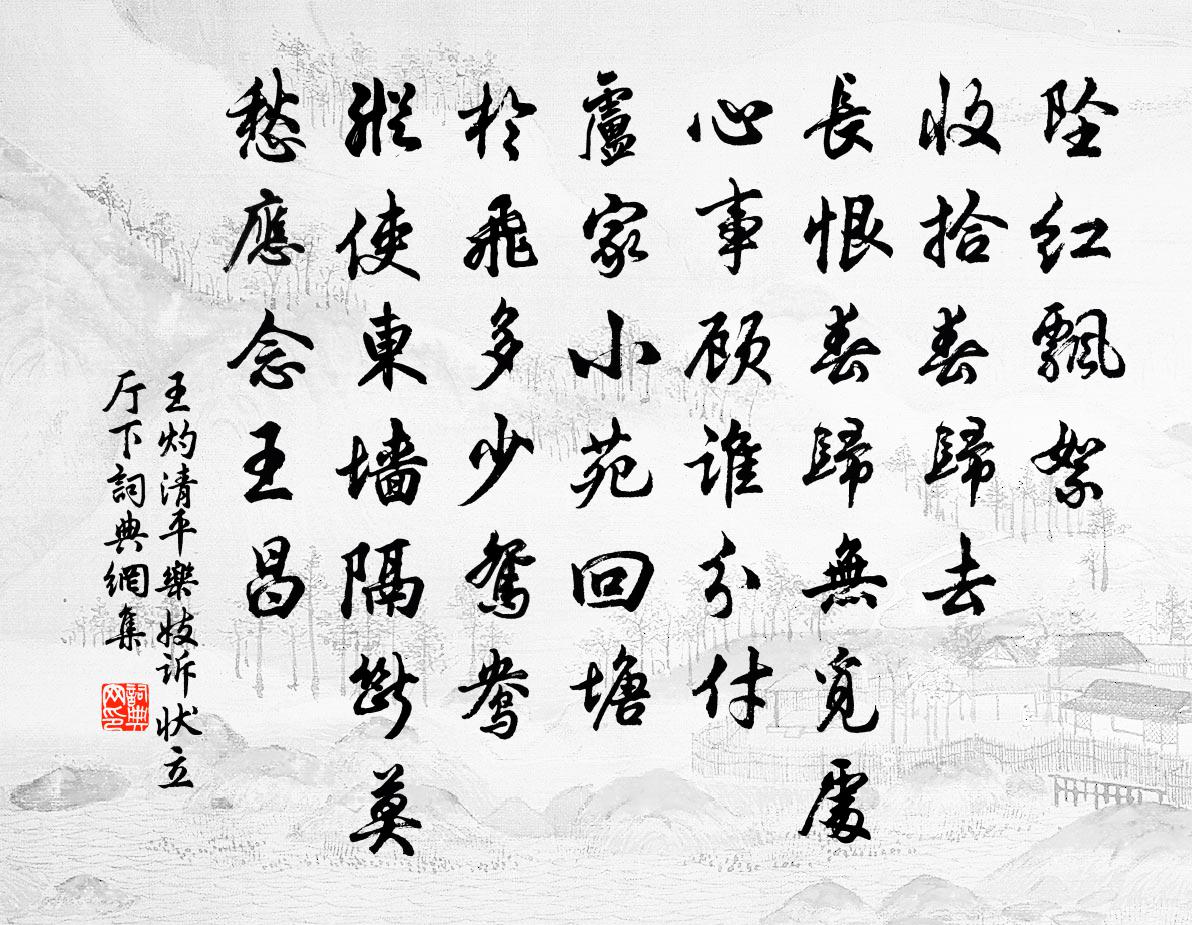 坠红飄絮
收拾春歸去
長恨春歸無覓處
心事顾谁分付
盧家小苑回塘
於飛多少鴛鴦
縱使東墻隔斷莫
愁應念王昌
王灼清平樂妓诉状立
厅下詞典網集
詞典网印